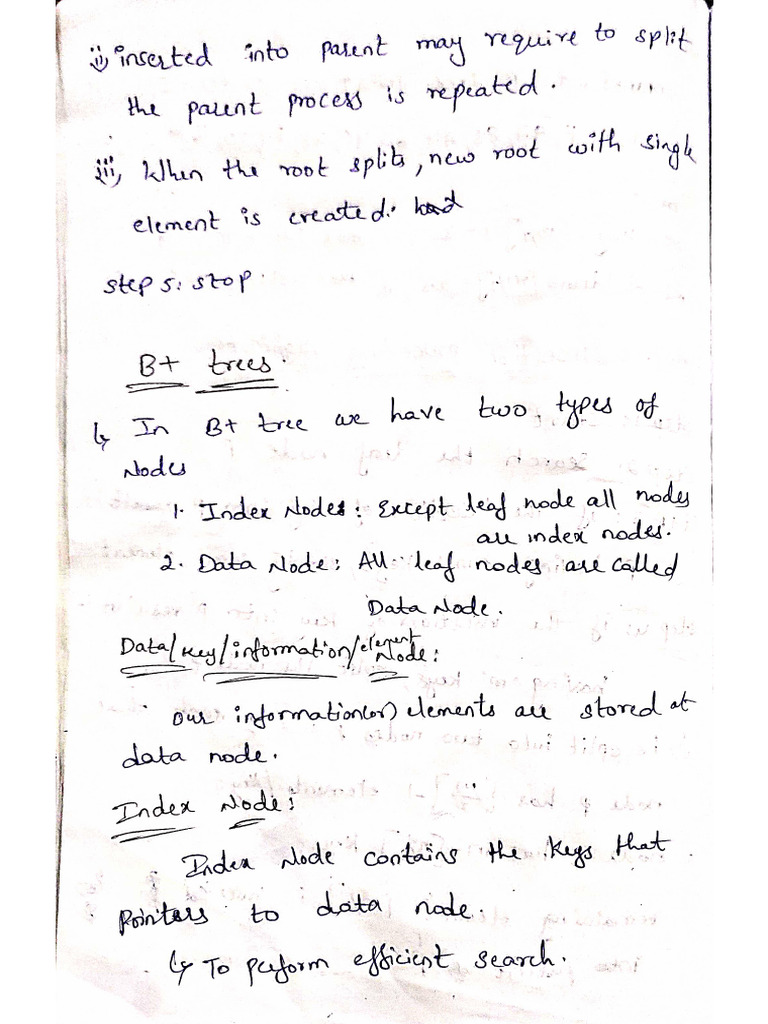 ii) inserted into parent may require to split
the parent process is repeated.
iii, When the root splits, new root with single
element is created.
step 5: stop.
B+ trees.
↳ In B+ tree we have two types of
Nodes
1. Index Nodes: Except leaf node all nodes
are index nodes.
2. Data Node: All leaf nodes are called
Data Node.
Data/key/information/element Node:
our information(or) elements are stored at
data node.
Index Node:
Index Node contains the keys that
pointers to data node.
↳ To perform efficient search.